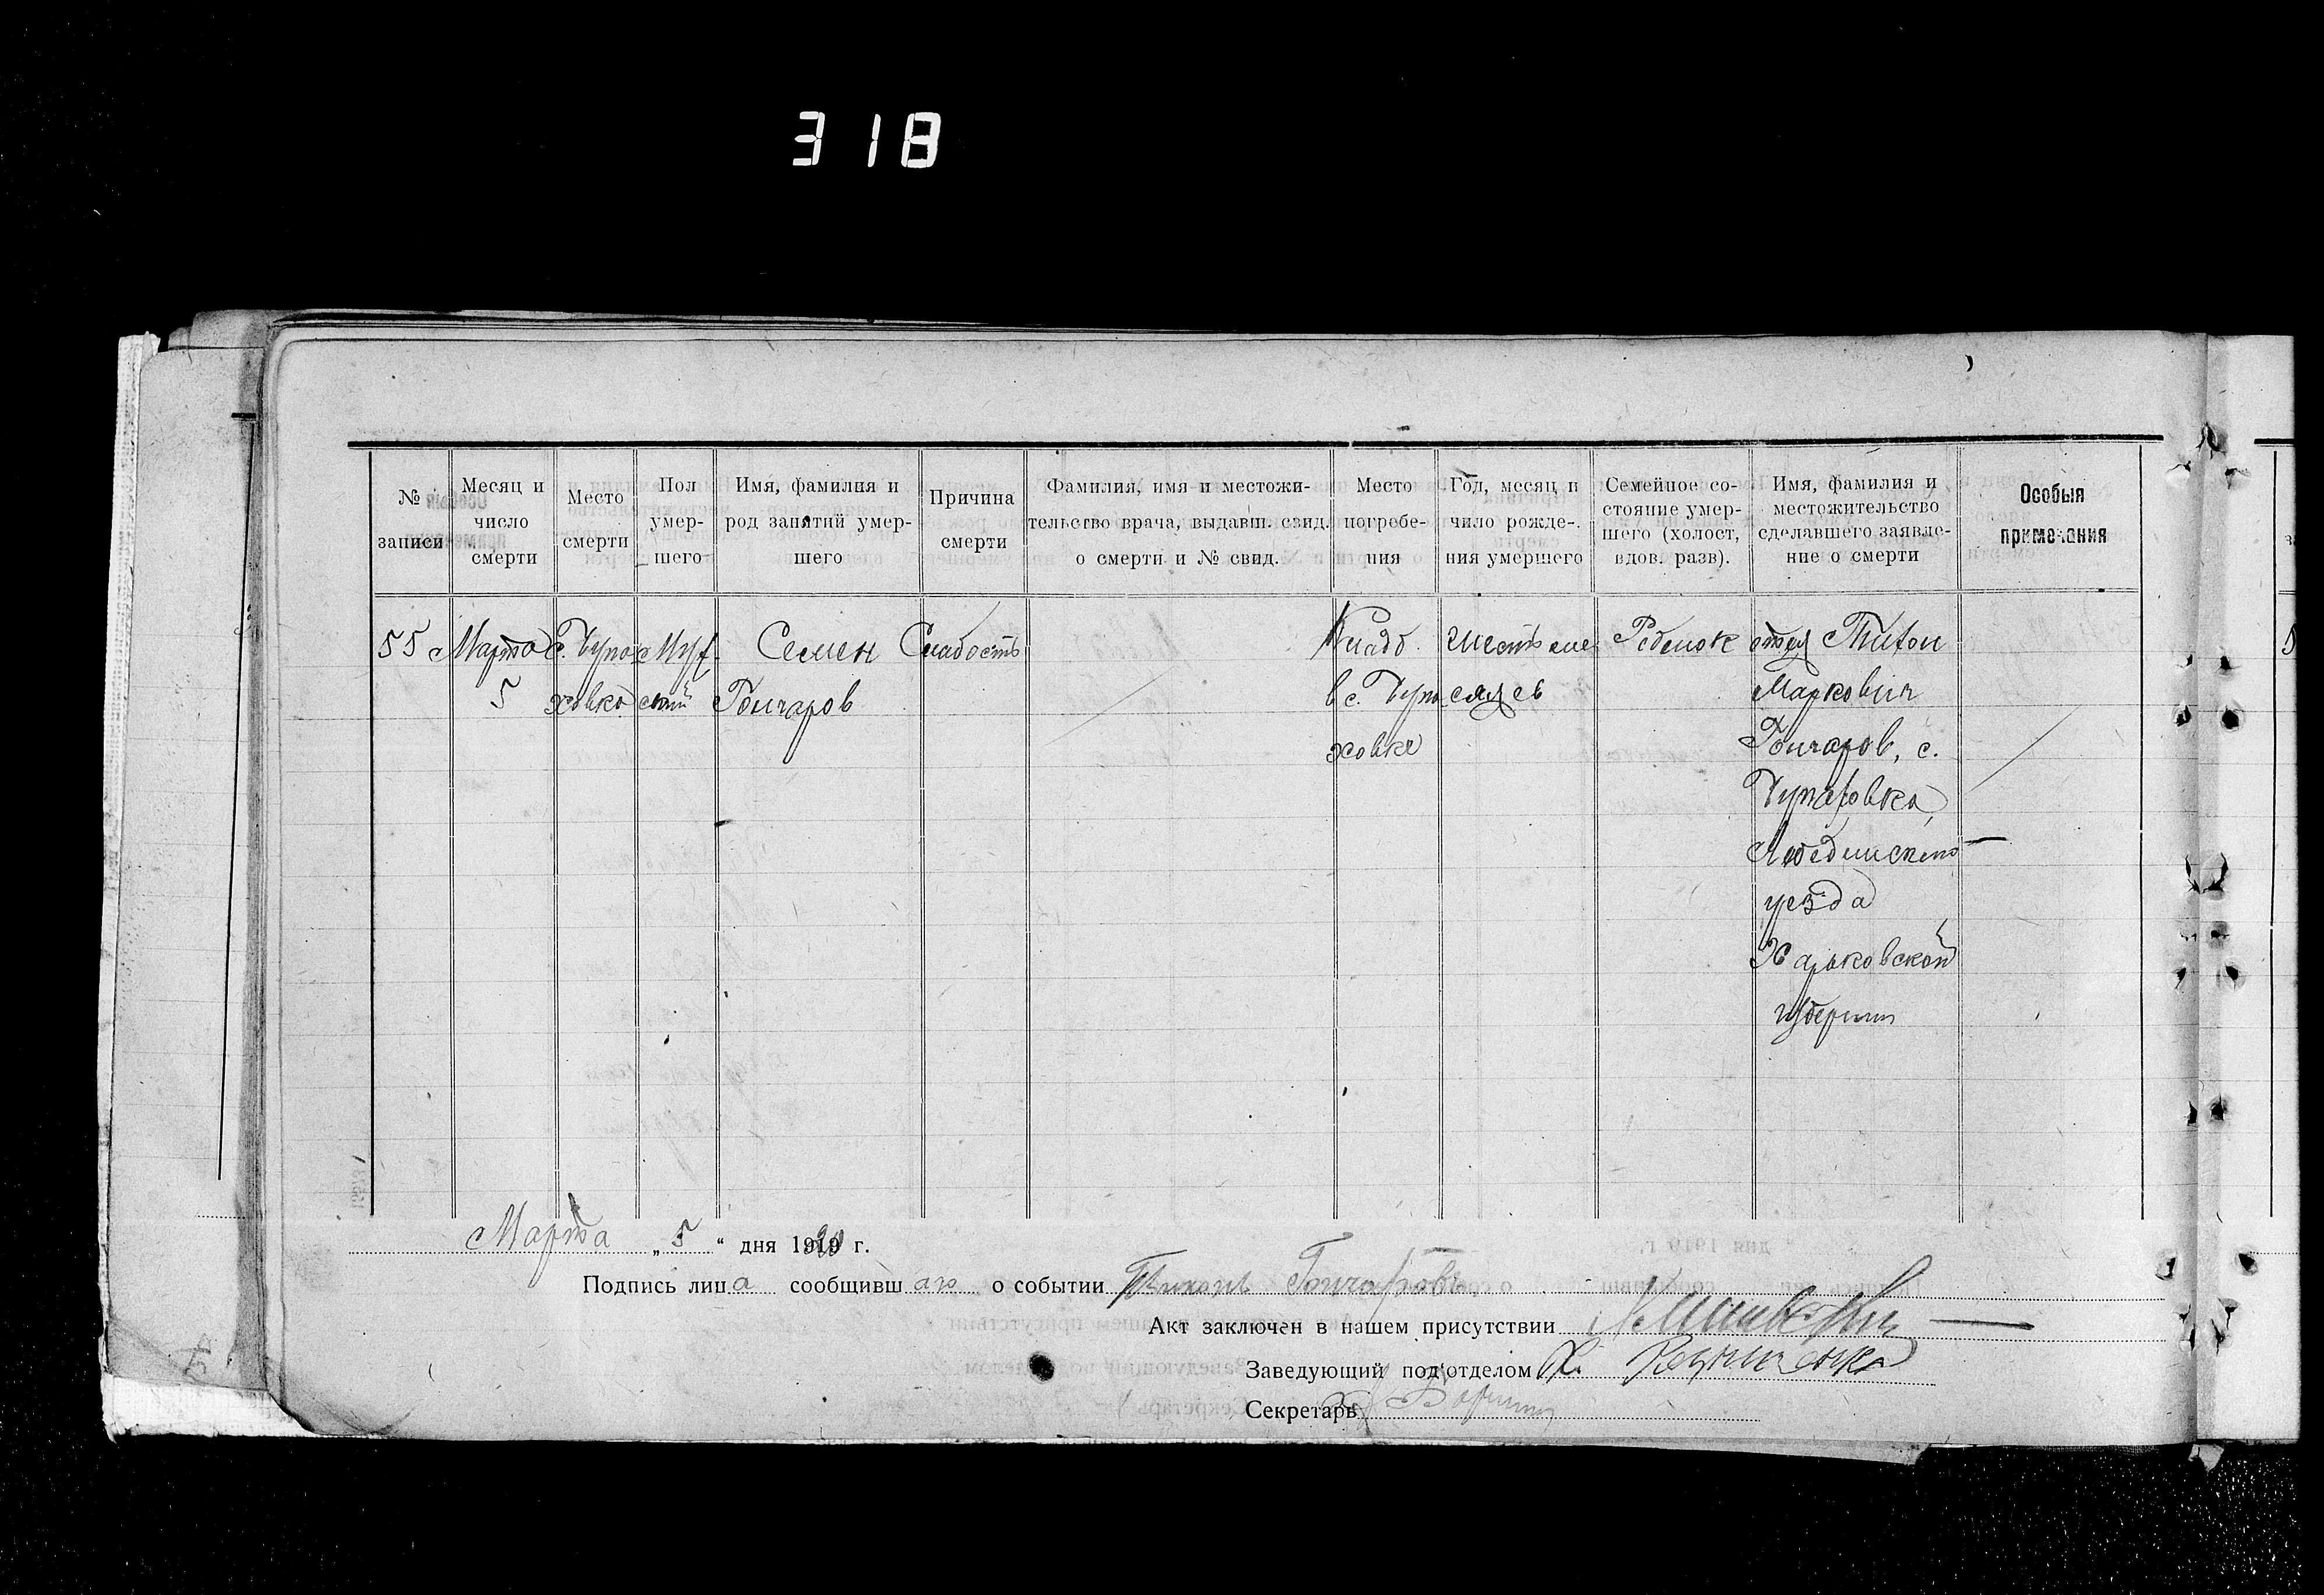 318
№ записи
Месяц и число смерти
Место смерти
Пол умер-шего
Имя, фамилия и род занятий умер-шего
Причина смерти
Фамилия, имя и местожи-тельство врача, выдавш. свид. о смерти и № свид.
Место погребе-ния
Год, месяц и число рожде-ния умершего
Семейное со-стояние умер-шего (холост, вдов. разв).
Имя, фамилия и местожительство сделавшего заявле-ние о смерти
Особыя примечания
55
Марта
5
с. Чупа-
ховка
Муж-
ской
Семен
Гончаров
Слабость
Кладб.
в с. Чупа-
ховке
шесть ме
сяцев
Ребенок
отец Тихон
Маркович
Гончаров, с.
Чупаховка,
Лебединского
уезда
Харьковской
губернии
Марта „5“ дня 1920 г.
Подпись лица сообщивш аго о событии Тихонъ Гончаровъ
Акт заключен в нашем присутствии
Заведующий под'отделом Х.
Секретарь